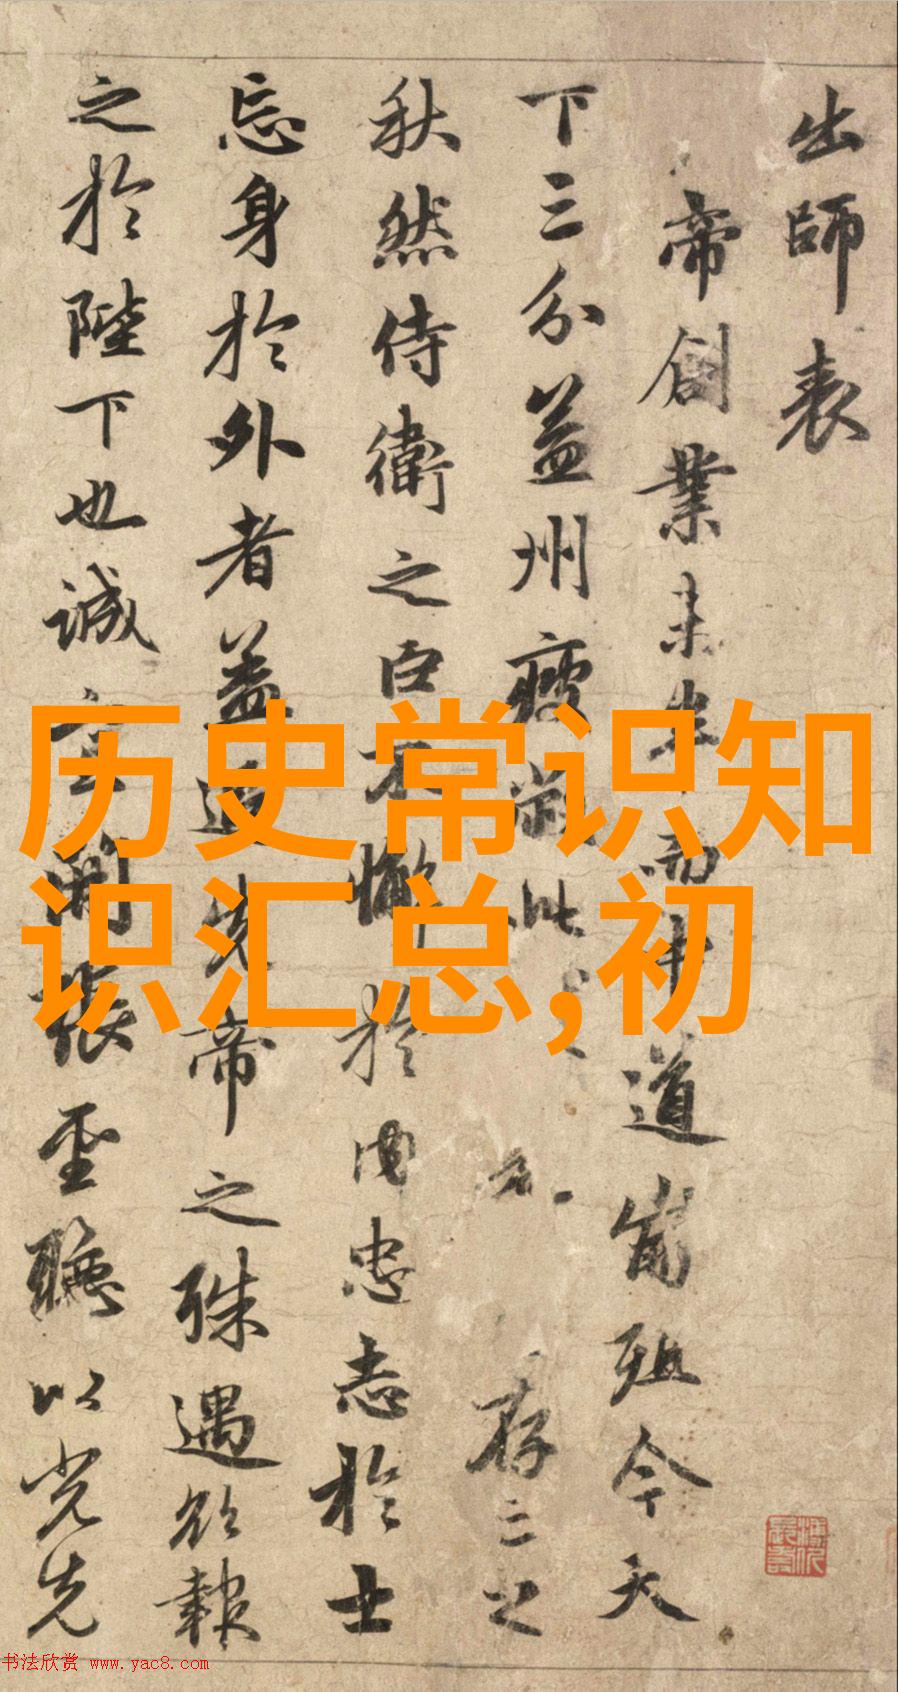 出師表
帝創業未半而中道崩殂今天
下三分益州疲此存亡之
秋然侍衛之臣不懈於内忠志於士
忘身於外者益追先帝之殊遇欲報
之於陛下也誠宜開張聖聽以光先
历史常识知
识汇总,初
书法欣赏 www.yac8.com